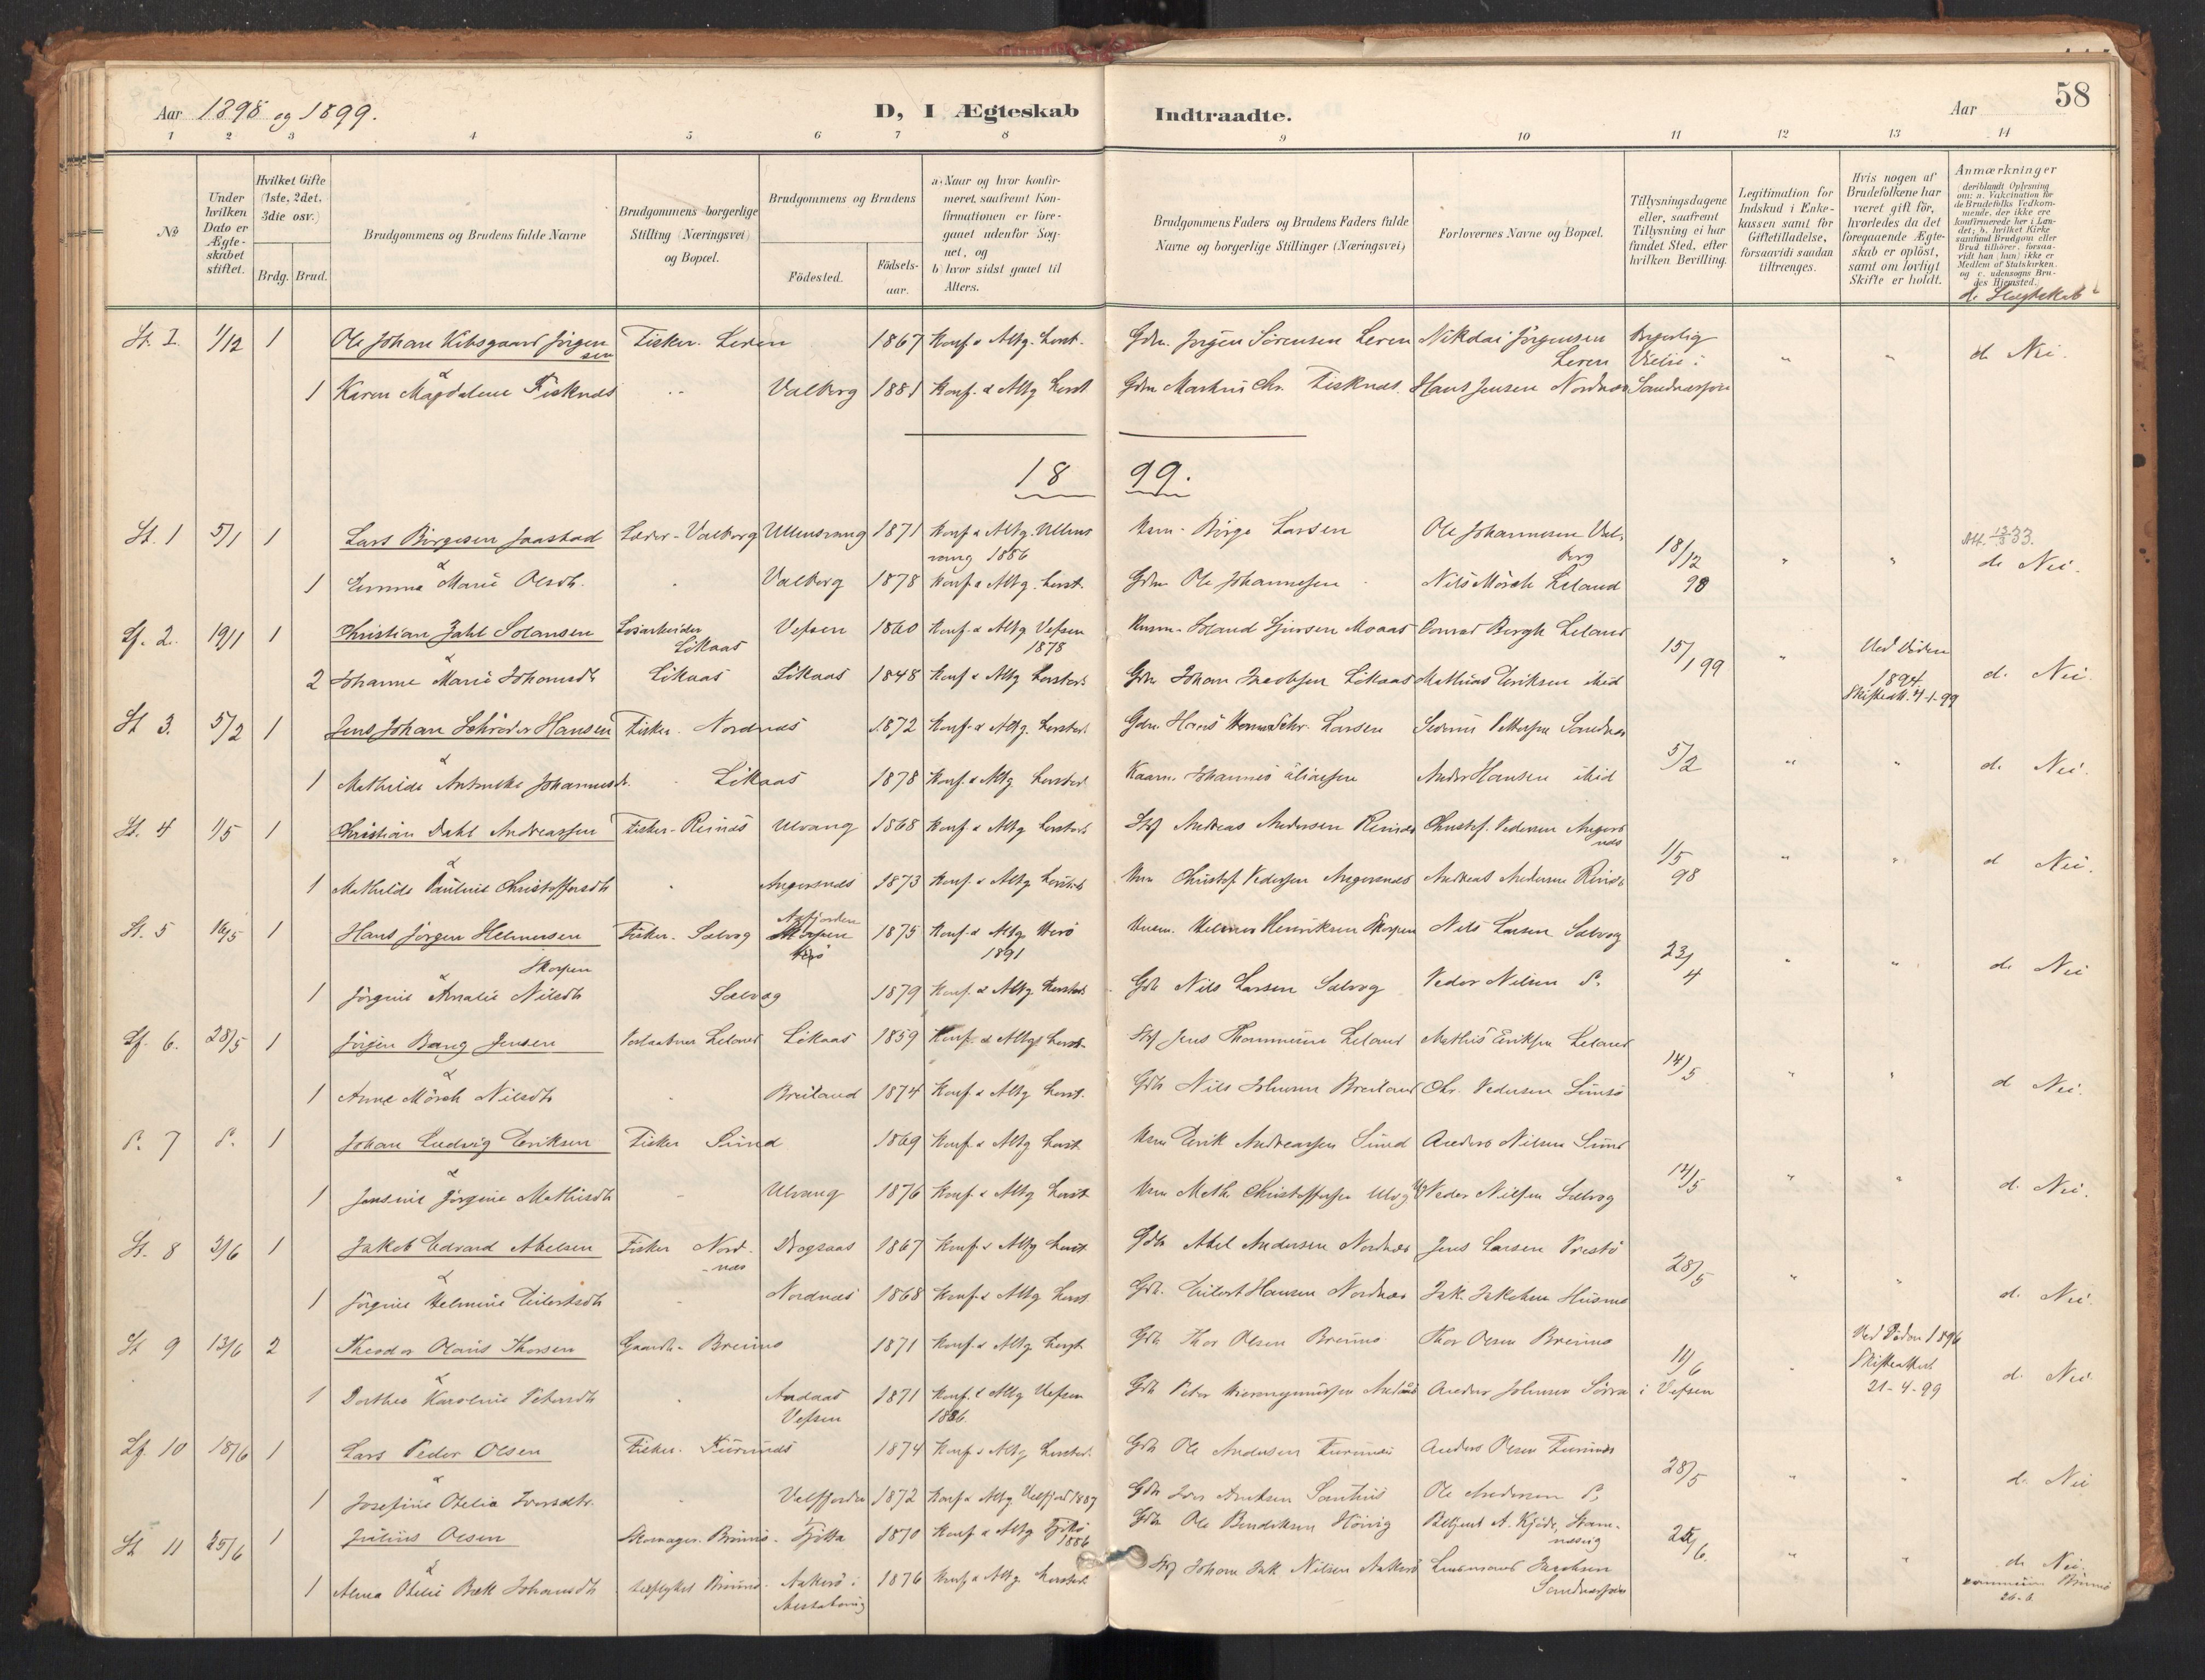 58
Aar 1898 og 1899.
D, I Ægteskab Indtraadte.
Aar
1 2 3 4 5 6 7 8 9 10 11 12 13 14
№
Under hvilken Dato er Ægteskabet stiftet.
Hvilket Gifte (1ste, 2det, 3die osv.)
Brdg. Brud.
Brudgommens og Brudens fulde Navne
Brudgommens borgerlige Stilling (Næringsvei) og Bopæl.
Brudgommens og Brudens
Födested.
Födselsaar.
a) Naar og hvor konfirmeret, saafremt Konfirmationen er foregaaet udenfor Sognet, og
b) hvor sidst gaaet til Alters.
Brudgommens Faders og Brudens Faders fulde Navne og borgerlige Stillinger (Næringsvei)
Forlovernes Navne og Bopæl.
Tillysningsdagene eller, saafremt Tillysning ei har fundet Sted, efter hvilken Bevilling.
Legitimation for Indskud i Enkekassen samt for Giftetilladelse, forsaavidt saadan tiltrænges.
Hvis nogen af Brudefolkene har været gift før, hvorledes da det foregaaende Ægteskab er oplöst, samt om lovligt Skifte er holdt.
Anmærkninger
(deriblandt Oplysning om: a. Vakcination for de Brudefolks Vedkommende, der ikke ere konfirmerede her i Landet; b. hvilket Kirkesamfund Brudgom eller Brud tilhörer, forsaavidt han (hun) ikke er Medlem af Statskirken, og c. udensogns Brudes Hjemsted.)
d. Slegtskab
St. I. 1/12 1 Ole Johan Kibsgaard Jörgensen Fisker. Leren 1867 Konf. & Altg. Herst. Gdm. Jörgen Sörensen Leren Nikolai Jörgensen Leren Borgerlig Vielse i " " d. Nei.
&
1 Karen Magdalene Fisknes " Valberg 1881 Konf. & Altg Herst. Gdm Martin Chr. Fisknes. Hans Jensen Nordnes Sandnessjøen
1899.
St. 1 5/1 1 Lars Börgesen Jaastad Valberg Ullensvang 1871 Konf & Altg. Ullensvang 1886 Börge Larsen Ole Johannesen Valberg 18/12 98 " " d. Nei.
&
1 Emma Marie Olsdt. " Valberg 1878 Konf & Altg. Herst. Gdm Ole Johannesen Nils Mörch Leland
Lf. 2. 19/1 1 Christian Dahl Solansen Likaas Vefsen 1860 Konf. & Altg. Vefsen 1878 Conrad Bergh Leland 15/1 99 " Ved Döden 1894. Skifteatt. 4-1-99 d. Nei.
&
2 Johanne Marie Johansdt Likaas Likaas 1848 Konf & Altg Hersted. Gdm Johan Jacobsen Likaas Mathias Eriksen ibid
St 3. 5/2 1 Jens Johan Schröder Hansen Fisker. Nordnes 1872 Konf. & Altg. Hersted. Gdm. Hans Larsen Pettersen Sandnes 5/2 " " d. Nei.
&
1 Mathilde Johannesdt. " Likaas 1878 Konf. & Altg Hersted Johannes Eliassen Anders Hansen ibid
St. 4 1/5 1 Christian Dahl Andreassen Fisker. Reines Ulvang 1868 Konf. & Altg Hersted Andreas Andersen Reines Christof. Pedersen Angersnes 1/5 98 " " d Nei.
&
1 Mathilde Pauline Christoffersdt " Angersnes 1873 Konf. & Altg Hersted Christof. Pedersen Angersnes Andreas Andersen Reines
St. 5 16/5 1 Hans Jörgen Helmersen Skorpen Fisker. Salvog Herö 1875 Konf. & Altg Herö 1891 Helmer Henriksen Skorpen Nils Larsen Salvog 23/4 " " d. Nei
&
1 Jörgine Amalie Nilsdt Salvog 1879 Konf. & Altg. Hersted Gdb Nils Larsen Salvog Peder Nilsen S.
Lf. 6. 28/5 1 Jörgen Bang Jensen Leland Likaas 1859 Konf. & Altg Herst. Jens Leland Mathis Eriksen Leland 14/5 " " d Nei.
&
1 Anne Mörch Nilsdt " Breiland 1874 Konf. & Altg Herst. Gdb Nils Johnsen Breiland Chr. Pedersen
S. 7 S. 1 Johan Ludvig Eriksen Fisker Sund 1869 Konf. & Altg Herst. Erik Andreassen Sund Anders Nilsen Sund 14/5 " " d. Nei.
&
1 Jensine Jörgine Mathisdt " Ulvang 1876 Konf. & Altg Herst Math. Christoffersen Peder Nilsen Salvog
St. 8 3/6 1 Jakob Edvard Abelsen Fisker Nordnes Drogsaas 1867 Konf. & Altg Herst Gdb Abel Andersen Nordnes Jens Larsen Prestö 28/5 " " d. Nei.
&
1 Jörgine Helmine Eilertsdt " Nordnes 1868 Konf. & Altg Herst Gdb. Eilert Hansen Nordnes Jak. Jakobsen Husmo
St 9 13/6 2 Theodor Olaus Thorsen Breimo 1871 Konf. & Altg Herst Gdb Thor Olsen Breimo Thor Olsen Breimo 11/6 i Vefsen " Ved Döden 1896 Skifteattest 21-4-99 d. Nei
&
1 Dorthea Karoline Petersdt " Andaas Vefsen 1871 Konf. & Altg Vefsen 1886. Gdb Peter Andaas Anders Johnsen Sörra
Lf. 10 18/6 1 Lars Peder Olsen Fisker. Furunes 1874 Konf. & Altg Hersted. Gdb Ole Andersen Furunes Anders Olsen Furunes 28/5 " " d. Nei
&
1 Josefine Otelie Iversdtr. " Velfjorden 1872 Konf & Altg Velfjord 1887 Gdb Iver Ole Andersen S.
St 11 25/6 1 Julius Olsen Skomager. Brunö. Tjötta 1870 Konf & Altg Tjötta 1886 Gdb Ole Bendiksen 25/6. " " d. Nei.
&
1 Alma Otelie Bæk Johansdt Aakerö i 1876 Konf & Altg Hersted. Johan Jak Nilsen Aakerö Lensmand Jacobsen Sandnessjøen 26.6.